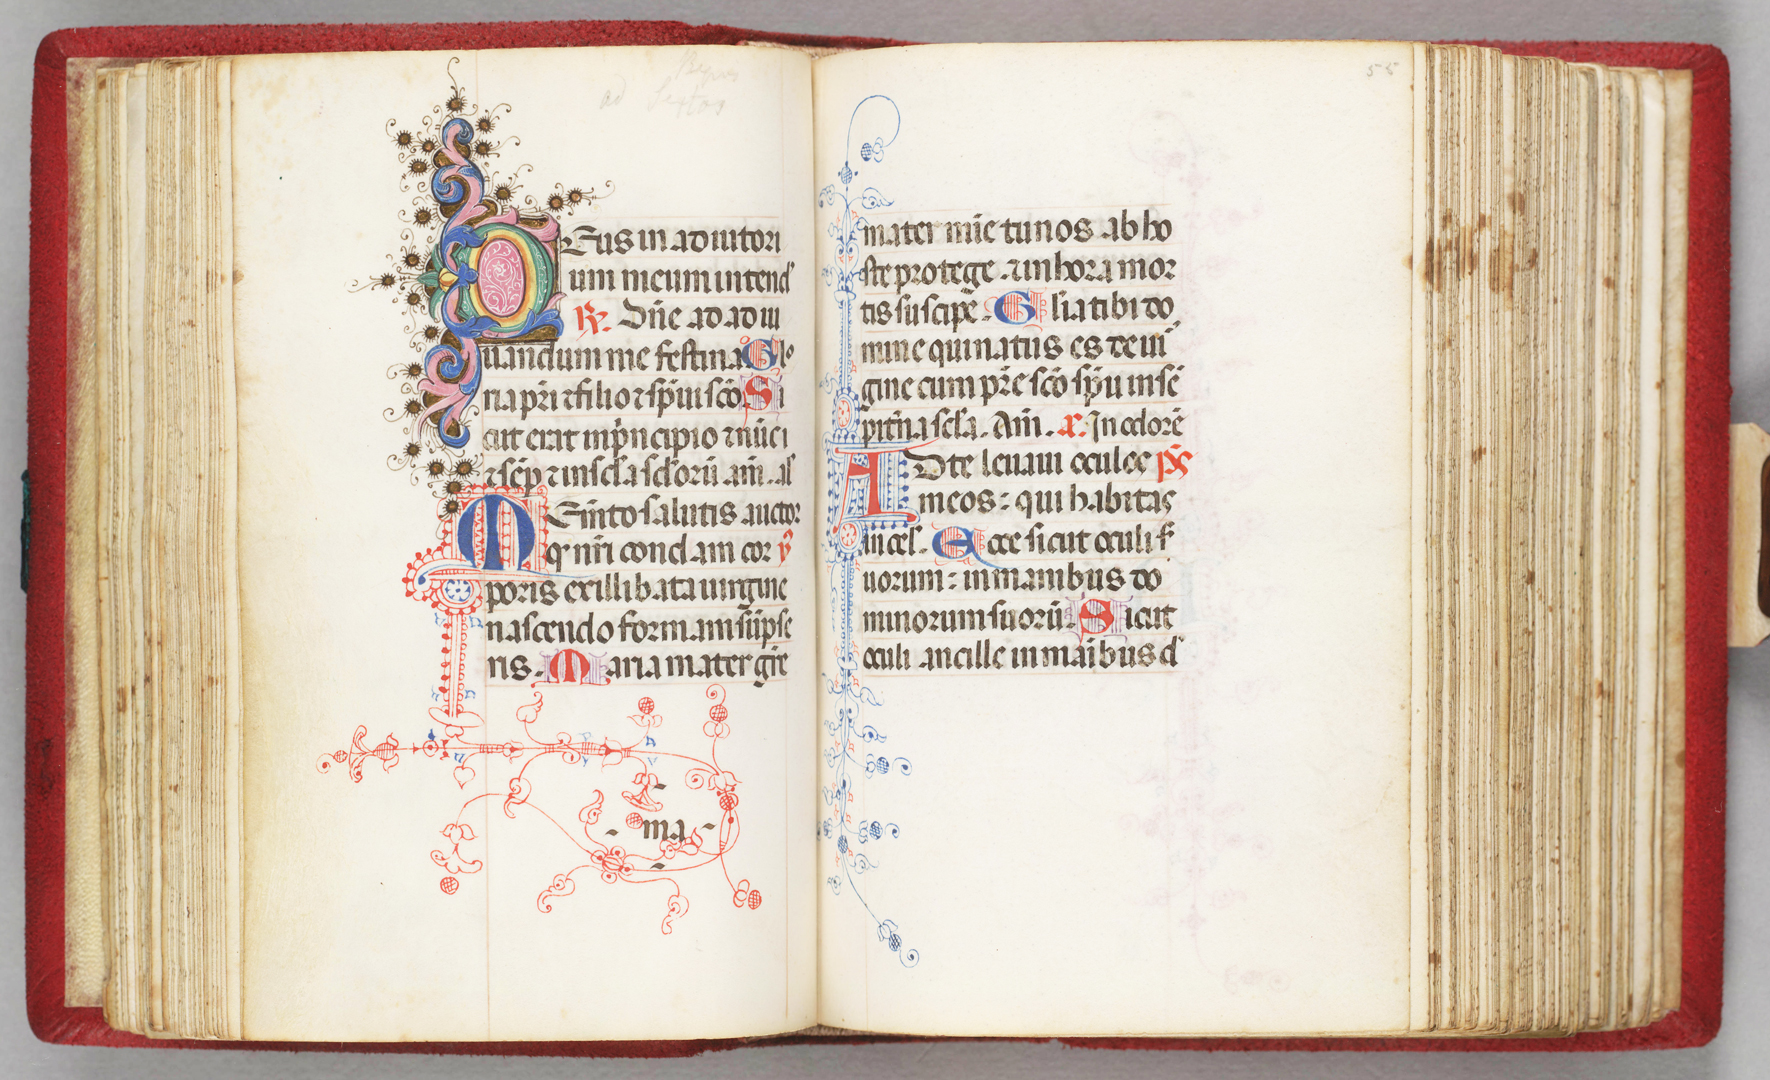 ad Sextas
Deus in adiutori
um meum intend'
R. Dn̄e ad adiu
uandum me festina Glo
ria pr̄i ⁊ filio ⁊ sp̄iu sc̄o. Si
cut erat in pⁱncipio ⁊ nūc ⁊
⁊ sēp ⁊ in scl̄a sclōrū am̄. al'
MEm̄to salutis auctor
ꝙ nr̄i condam cor y̾
poris ex illibata uirgine
nascendo formam sūpse
ris. Maria mater gr̄e
·ma·
55
mater mīe tu nos ab ho
ste protege ⁊ in hora mor
tis suscipe. Gl̄ia tibi do
mine qui natus es de uí
gine cum pr̄e sc̄o sp̄u in sē
pit̄na scl̄a. Am̄. a. In odorē
AD te leuaui oculos ps̄
meos: qui habitas
in cel'. Ecce sicut oculi s̄
uorum: in manibus do
minorum suorū. Sicut
oculi ancille in maībus d'